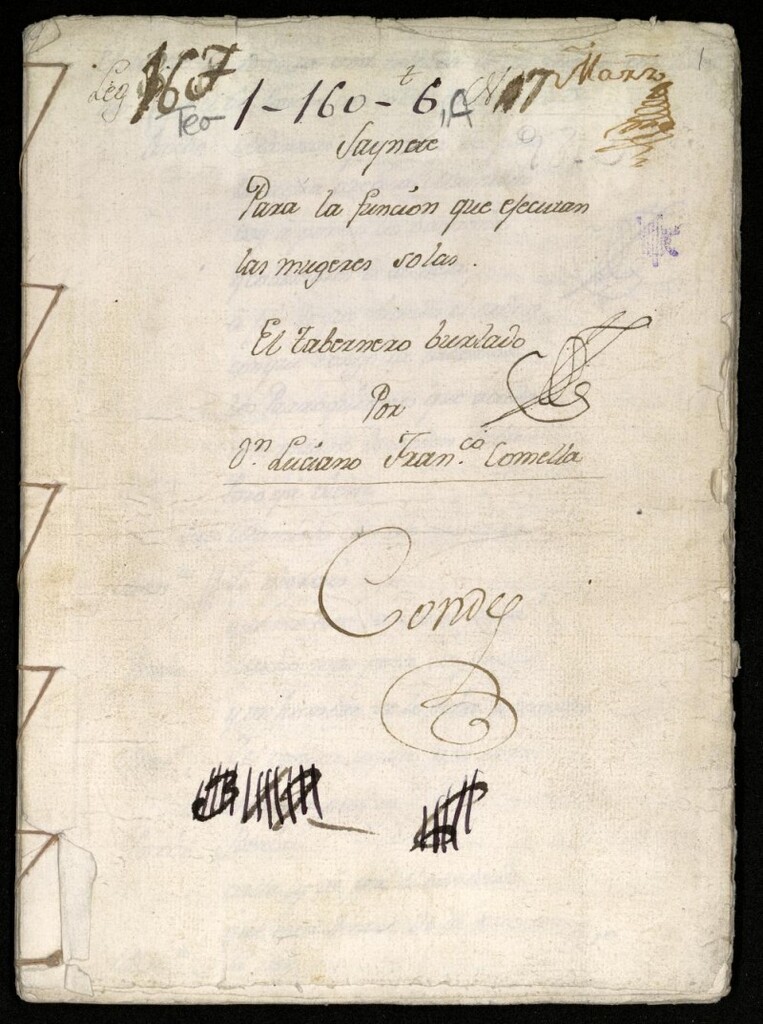 Leg 167
1
Teo 1-160-6, A
N 17
Saynete
Para la funcion que ejecutan
las mugeres solas.
El tabernero burlado
Por
Dn. Luciano Fran.co Comella
Conde